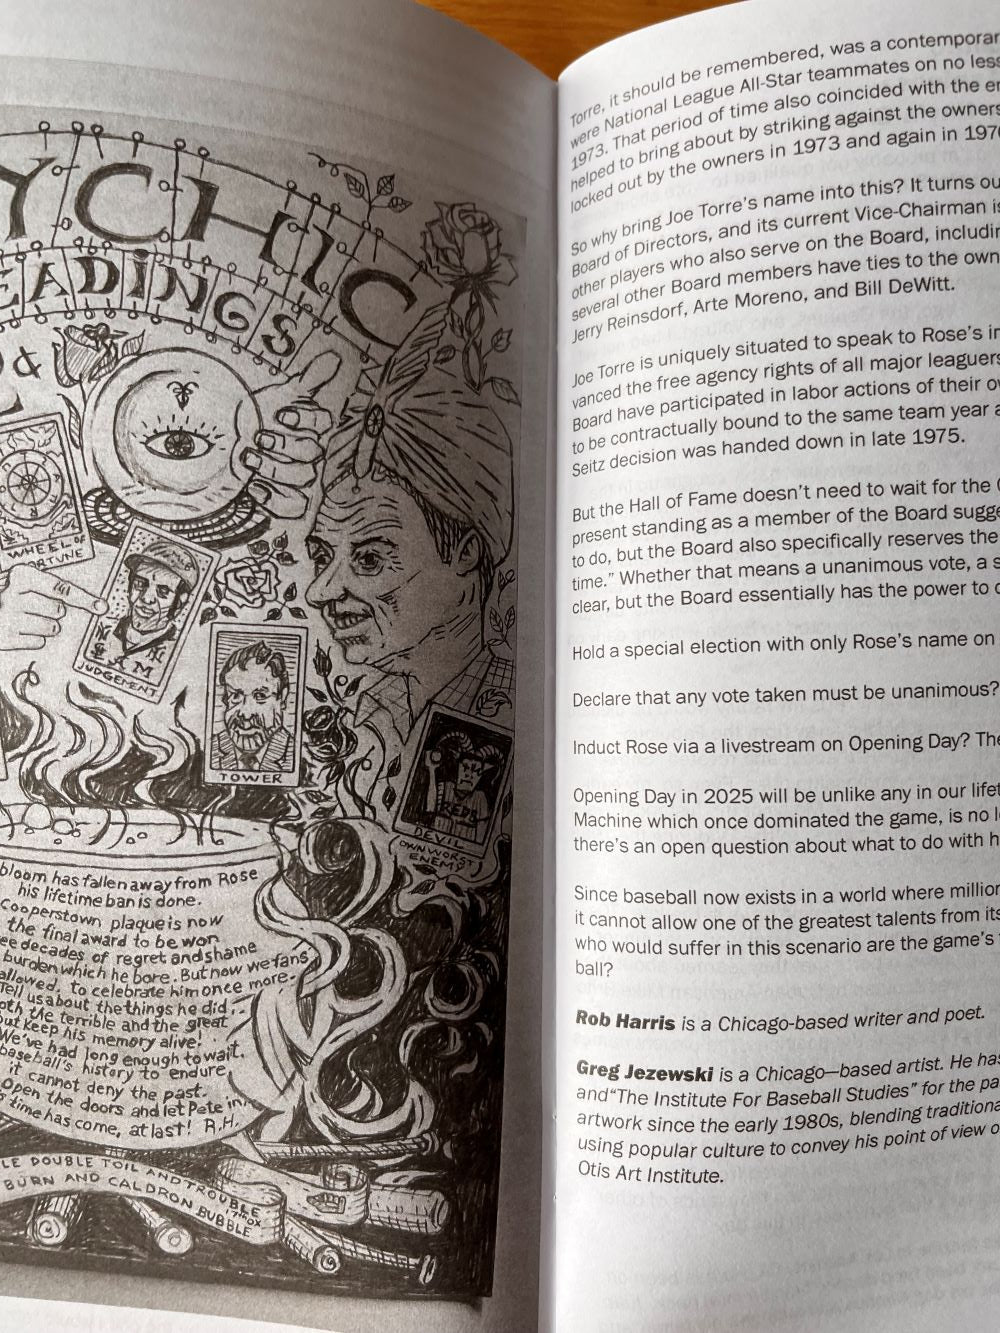 YCHIC
EADINGS
&
WHEEL OF
FORTUNE
JUDGEMENT
TOWER
REDS
DEVIL
OWN WORST
ENEMY
bloom has fallen away from Rose
his lifetime ban is done.
Cooperstown plaque is now
the final award to be won
ee decades of regret and shame
burden which he bore. But now we fans
allowed, to celebrate him once more.
Tell us about the things he did,
oth the terrible and the great
but keep his memory alive!
We've had long enough to wait.
baseball's history to endure,
it cannot deny the past.
Open the doors and let Pete in,
s time has come, at last! R.H.
LE DOUBLE TOIL AND TROUBLE
BURN AND CALDRON BUBBLE
Torre, it should be remembered, was a contemporar
were National League All-Star teammates on no less
1973. That period of time also coincided with the er
helped to bring about by striking against the owners
locked out by the owners in 1973 and again in 1976
So why bring Joe Torre's name into this? It turns ou
Board of Directors, and its current Vice-Chairman is
other players who also serve on the Board, includin
several other Board members have ties to the own
Jerry Reinsdorf, Arte Moreno, and Bill DeWitt.
Joe Torre is uniquely situated to speak to Rose's in
vanced the free agency rights of all major leaguers
Board have participated in labor actions of their ow
to be contractually bound to the same team year a
Seitz decision was handed down in late 1975.
But the Hall of Fame doesn't need to wait for the
present standing as a member of the Board sugge
to do, but the Board also specifically reserves the
time." Whether that means a unanimous vote, a s
clear, but the Board essentially has the power to
Hold a special election with only Rose's name on
Declare that any vote taken must be unanimous?
Induct Rose via a livestream on Opening Day? The
Opening Day in 2025 will be unlike any in our lifet
Machine which once dominated the game, is no l
there's an open question about what to do with h
Since baseball now exists in a world where million
it cannot allow one of the greatest talents from its
who would suffer in this scenario are the game's
ball?
Rob Harris is a Chicago-based writer and poet.
Greg Jezewski is a Chicago—based artist. He has
and"The Institute For Baseball Studies" for the pa
artwork since the early 1980s, blending traditiona
using popular culture to convey his point of view o
Otis Art Institute.